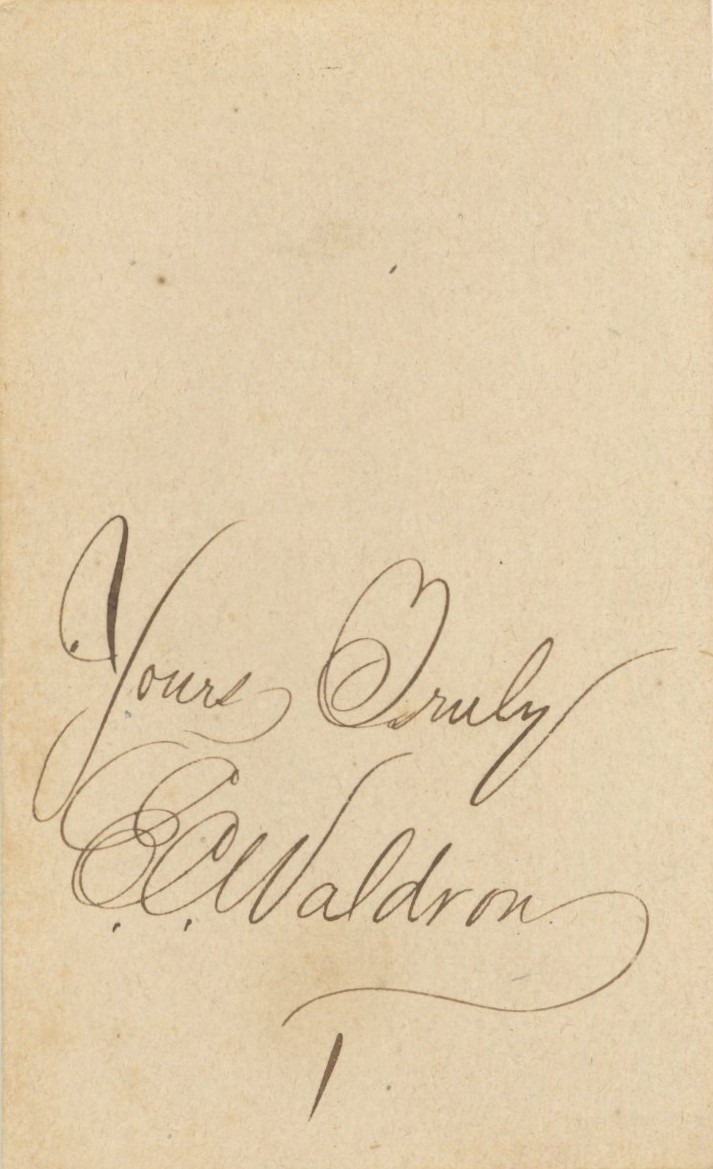 Yours Truly
E. C. Waldron